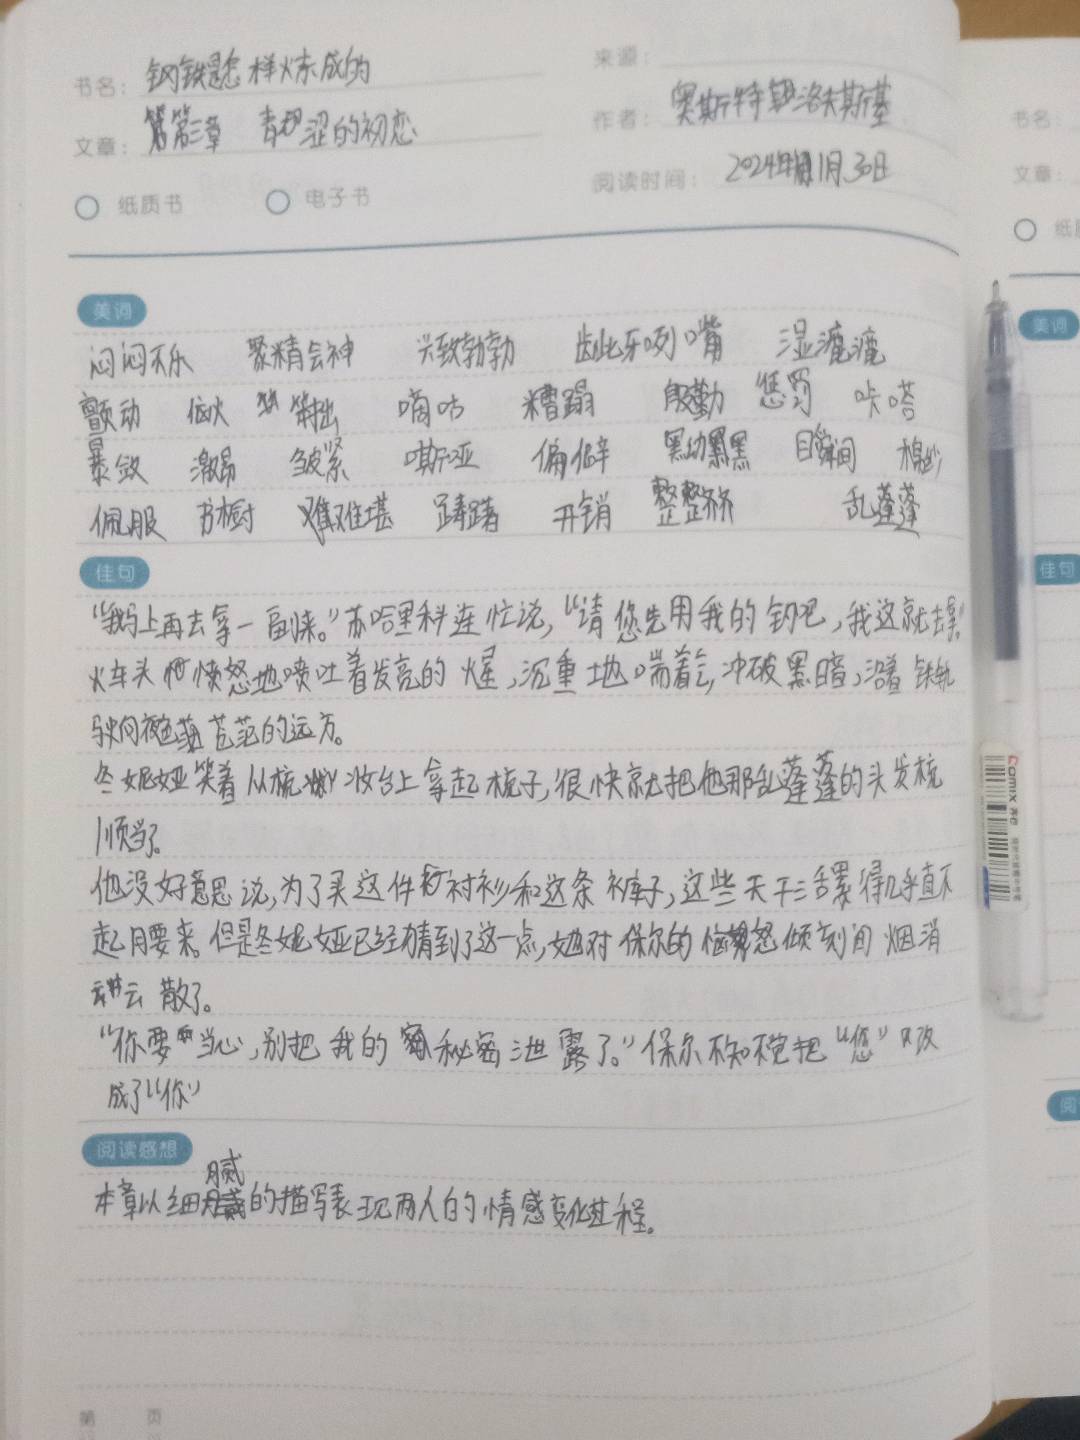 书名： 钢铁是怎样炼成的
来源：
文章： 第三章 青涩的初恋
作者： 奥斯特洛夫斯基
纸质书 电子书
阅读时间： 2024年11月30日
美词
闷闷不乐 聚精会神 兴致勃勃 龇牙咧嘴 湿漉漉
颤动 伙 嘀咕 糟蹋 殷勤 惩罚 咔嗒
暴敛 激昂 皱紧 嘶哑 偏僻 黑黝黝 瞬间 棉纱
佩服 书橱 难堪 踌躇 开销 整整齐齐 乱蓬蓬
佳句
“我马上再去拿一副来。”苏哈里科连忙说，“请您先用我的钓吧，我这就去拿。”
火车头愤怒地喷吐着发亮的火星，沉重地喘着气，冲破黑暗，沿着铁轨
驶向夜色苍茫的远方。
冬妮娅笑着从梳妆台上拿起梳子，很快就把他那乱蓬蓬的头发梳
顺当了。
他没好意思说，为了买这件衬衫和这条裤子，这些天干活累得几乎直不
起腰来。但是冬妮娅已经猜到了这一点，她对保尔的恼怒倾刻间烟消
云散了。
“你要当心，别把我的秘密泄露了。”保尔不知不觉把“您”改
成了“你”
阅读感想
本章以细腻的描写表现两人的情感变化过程。
第 页
书名：
文章：
美词
佳句
Comix 齐心